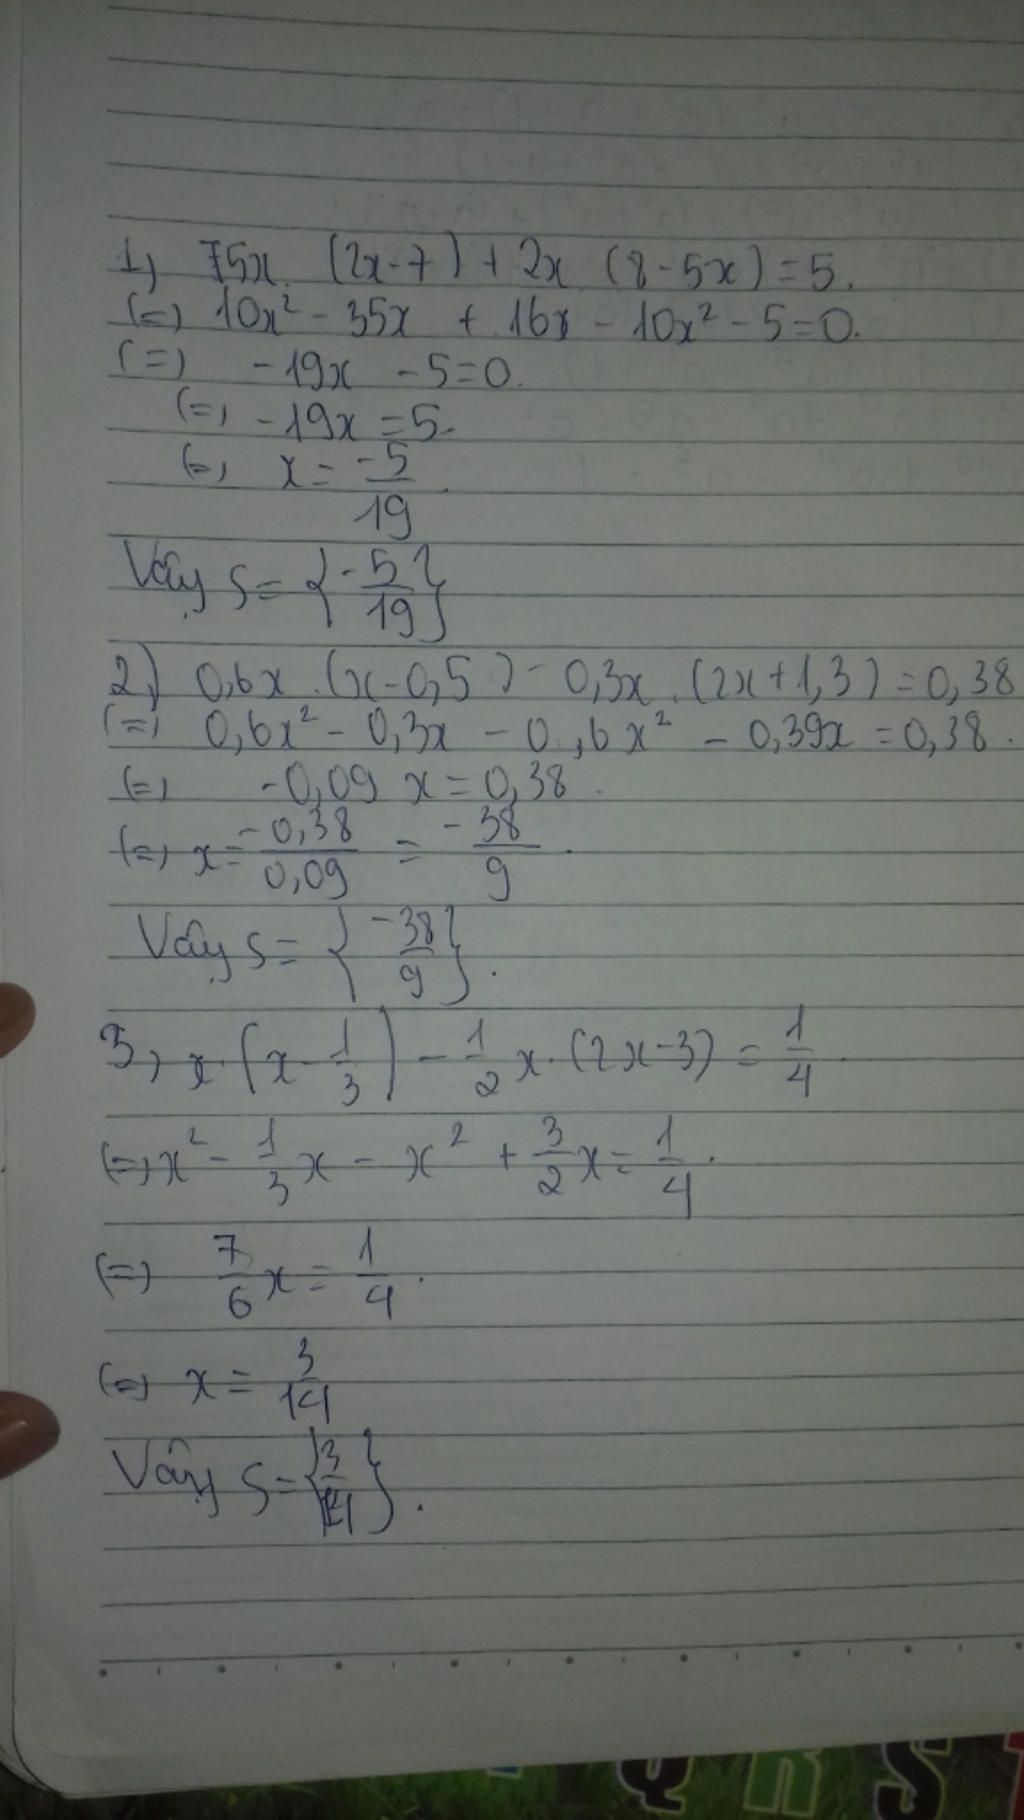 1) 75x. (2x-7) + 2x (8-5x) = 5.
(=) 10x² - 35x + 16x - 10x² - 5 = 0.
(=) -19x - 5 = 0.
(=) -19x = 5.
(=) x = -5/19.
Vậy S = {-5/19}
2) 0,6x.(x-0,5) - 0,3x.(2x+1,3) = 0,38
(=) 0,6x² - 0,3x - 0,6x² - 0,39x = 0,38.
(=) -0,09 x = 0,38.
(=) x = -0,38/0,09 = -38/9.
Vậy S = {-38/9}.
3) x.(x - 1/3) - 1/2 x.(2x-3) = 1/4.
(=) x² - 1/3 x - x² + 3/2 x = 1/4.
(=) 7/6 x = 1/4.
(=) x = 3/14
Vậy S = {3/14}.